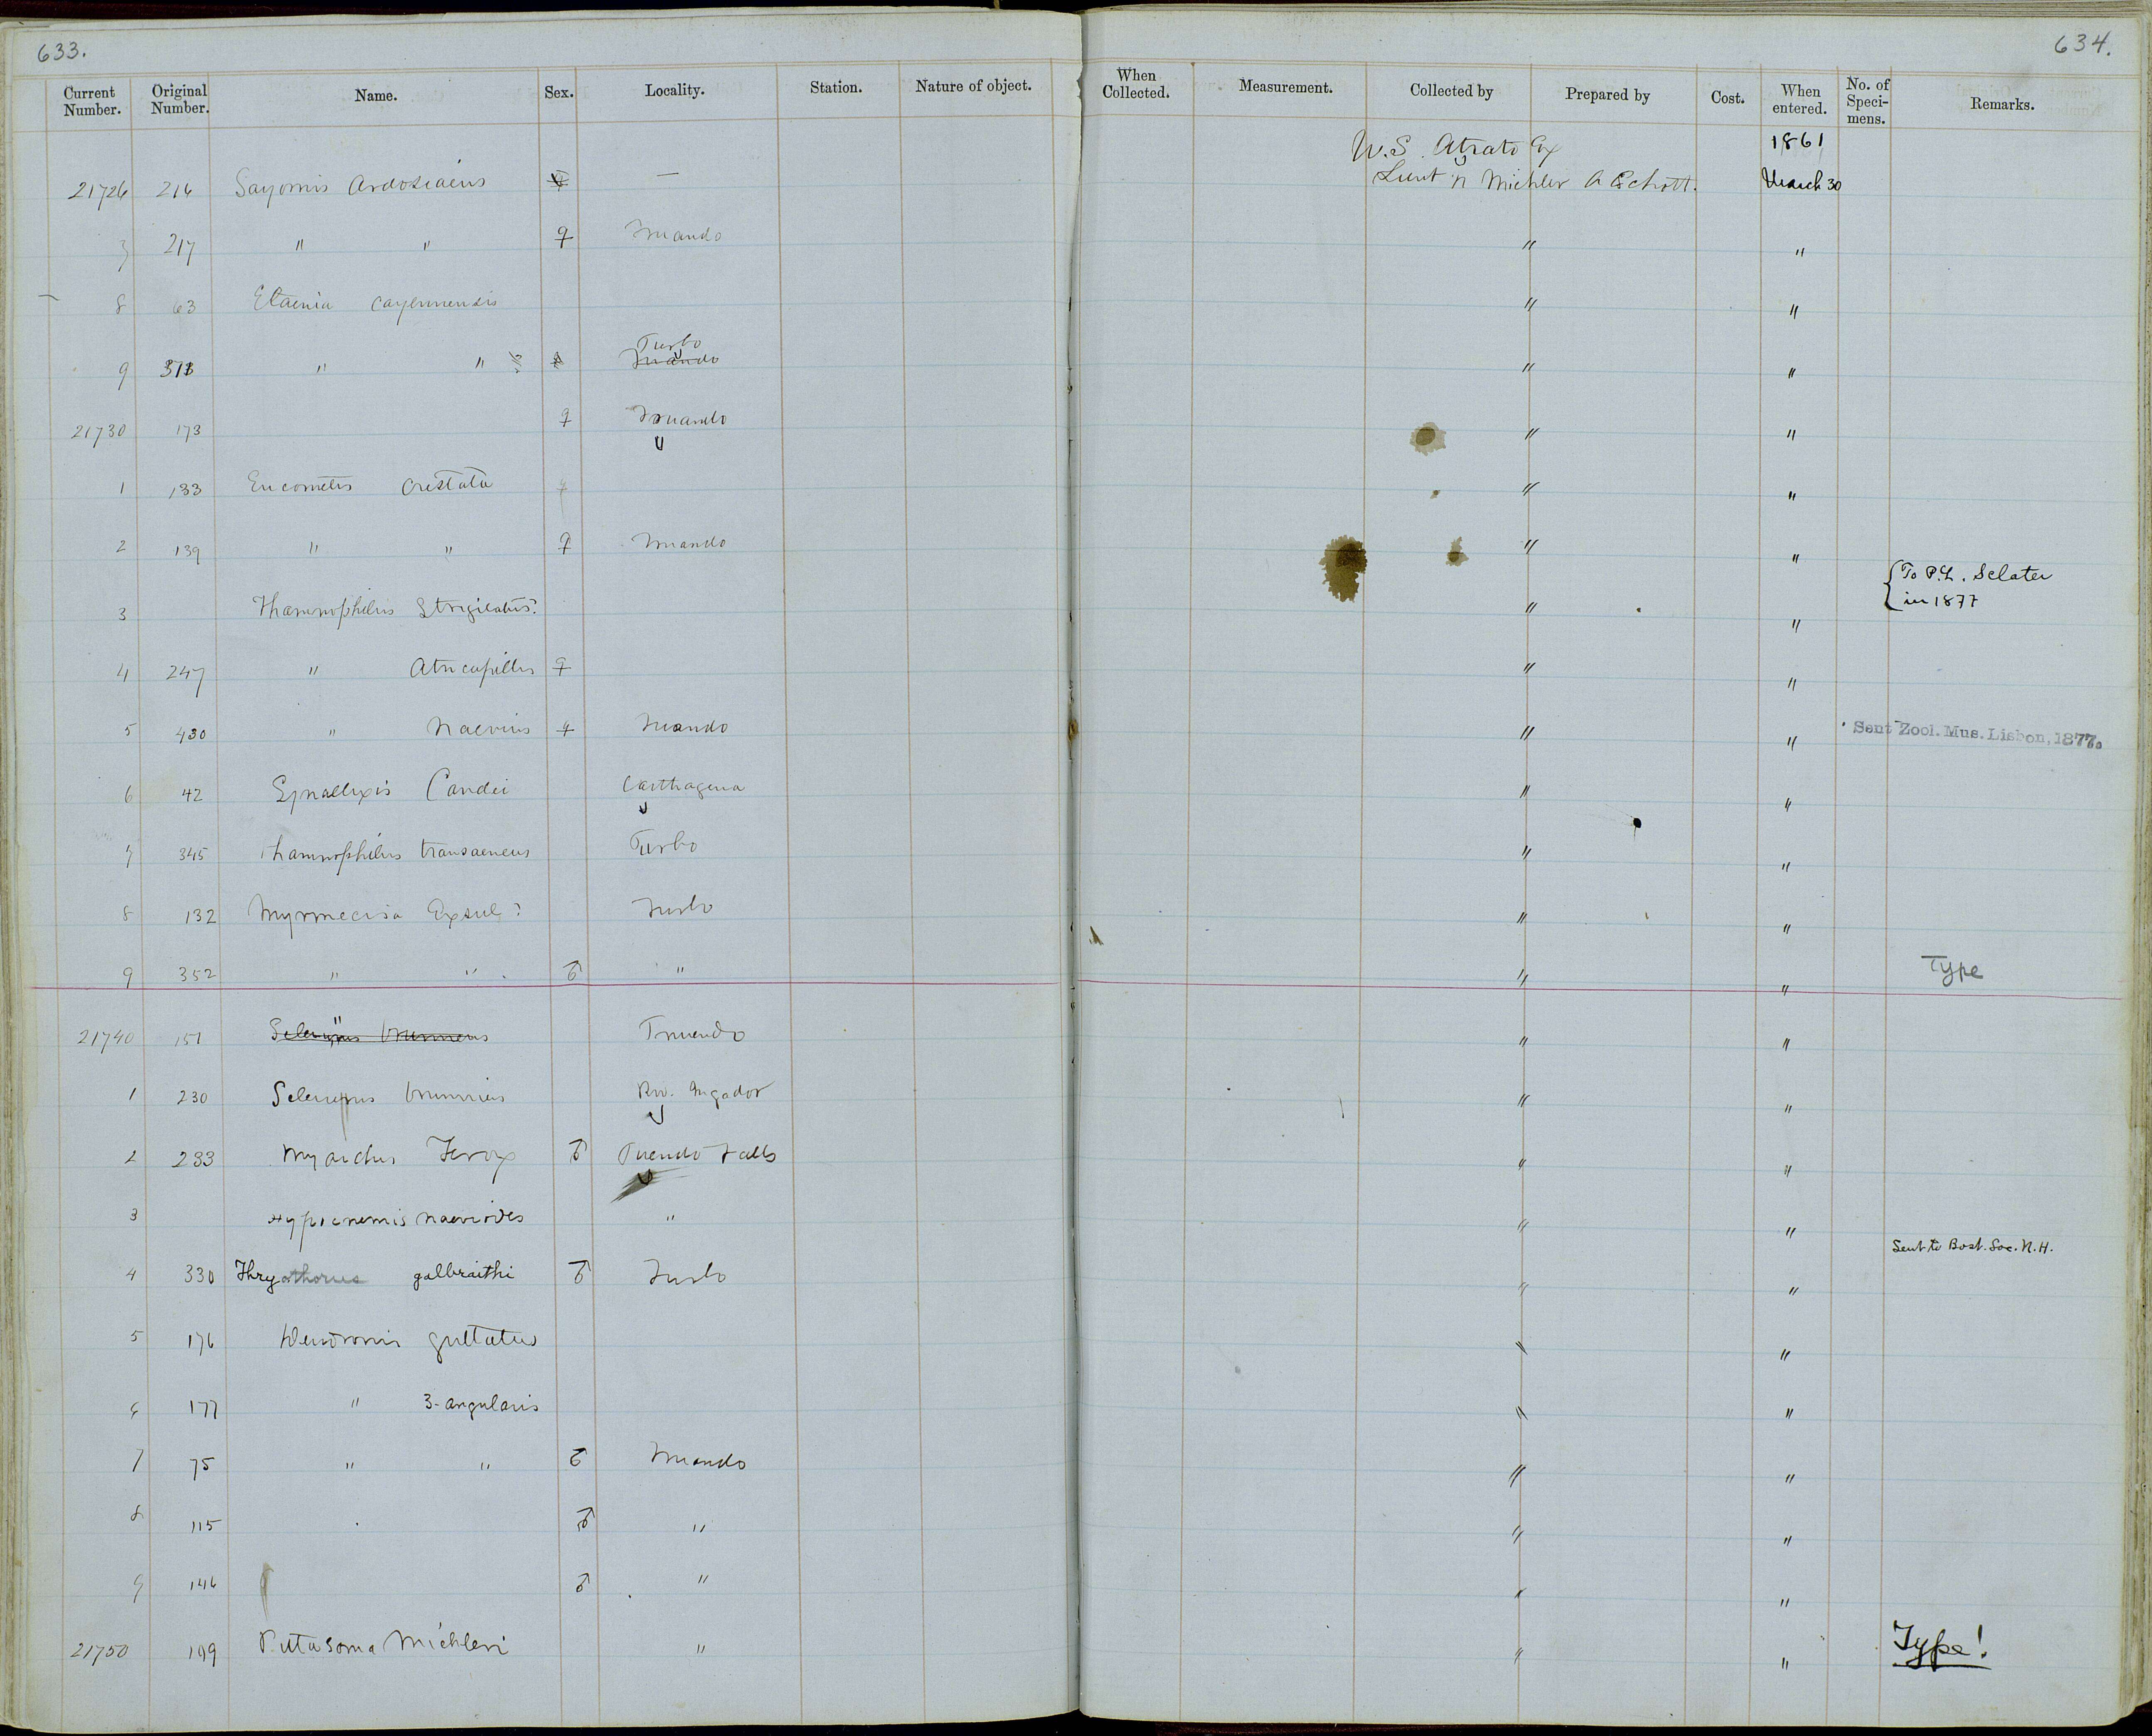 633.
634.
Current Number. Original Number. Name. Sex. Locality. Station. Nature of object. When Collected. Measurement. Collected by Prepared by Cost. When entered. No. of Speci-mens. Remarks.
U.S. Atrato Ex 1861
21726 216 Sayornis Ardosiacus — Lieut N Michler A Schott. March 30
7 217 " " ♀ Truando " "
8 63 Elaenia cayennensis " "
9 " " Turbo Truando " "
21730 173 ♀ Truando " "
1 133 Eucometis cristata ♀ " "
2 139 " " ♀ Truando " "
3 Thamnophilus Strigilatus? " " To P.L. Sclater in 1877
4 247 " Atricapillus ♀ " "
5 430 " Naevius ♀ Truando " " Sent Zool. Mus. Lisbon, 1877.
6 42 Synallaxis Candei Carthagena " "
7 345 Thamnophilus transaeneus Turbo " "
8 132 Myrmeciza Exsul? Turbo " "
9 352 " " ♂ " " " Type
21740 151 Sclerurus brunneus " Truando " "
1 230 Sclerurus brunneus Riv. Ingador " "
2 233 Myiarchus Ferox ♂ Truando Falls " "
3 Hypocnemis naevioides " " "
4 330 Thryothorus galbraithi ♂ Turbo " " Sent to Bost. Soc. N.H.
5 176 Dendrornis guttatus " "
6 177 " 3-angularis " "
7 75 " " ♂ Truando " "
8 115 ♂ " " "
9 146 ♂ " " "
21750 199 Pittasoma Michleri " " " Type!